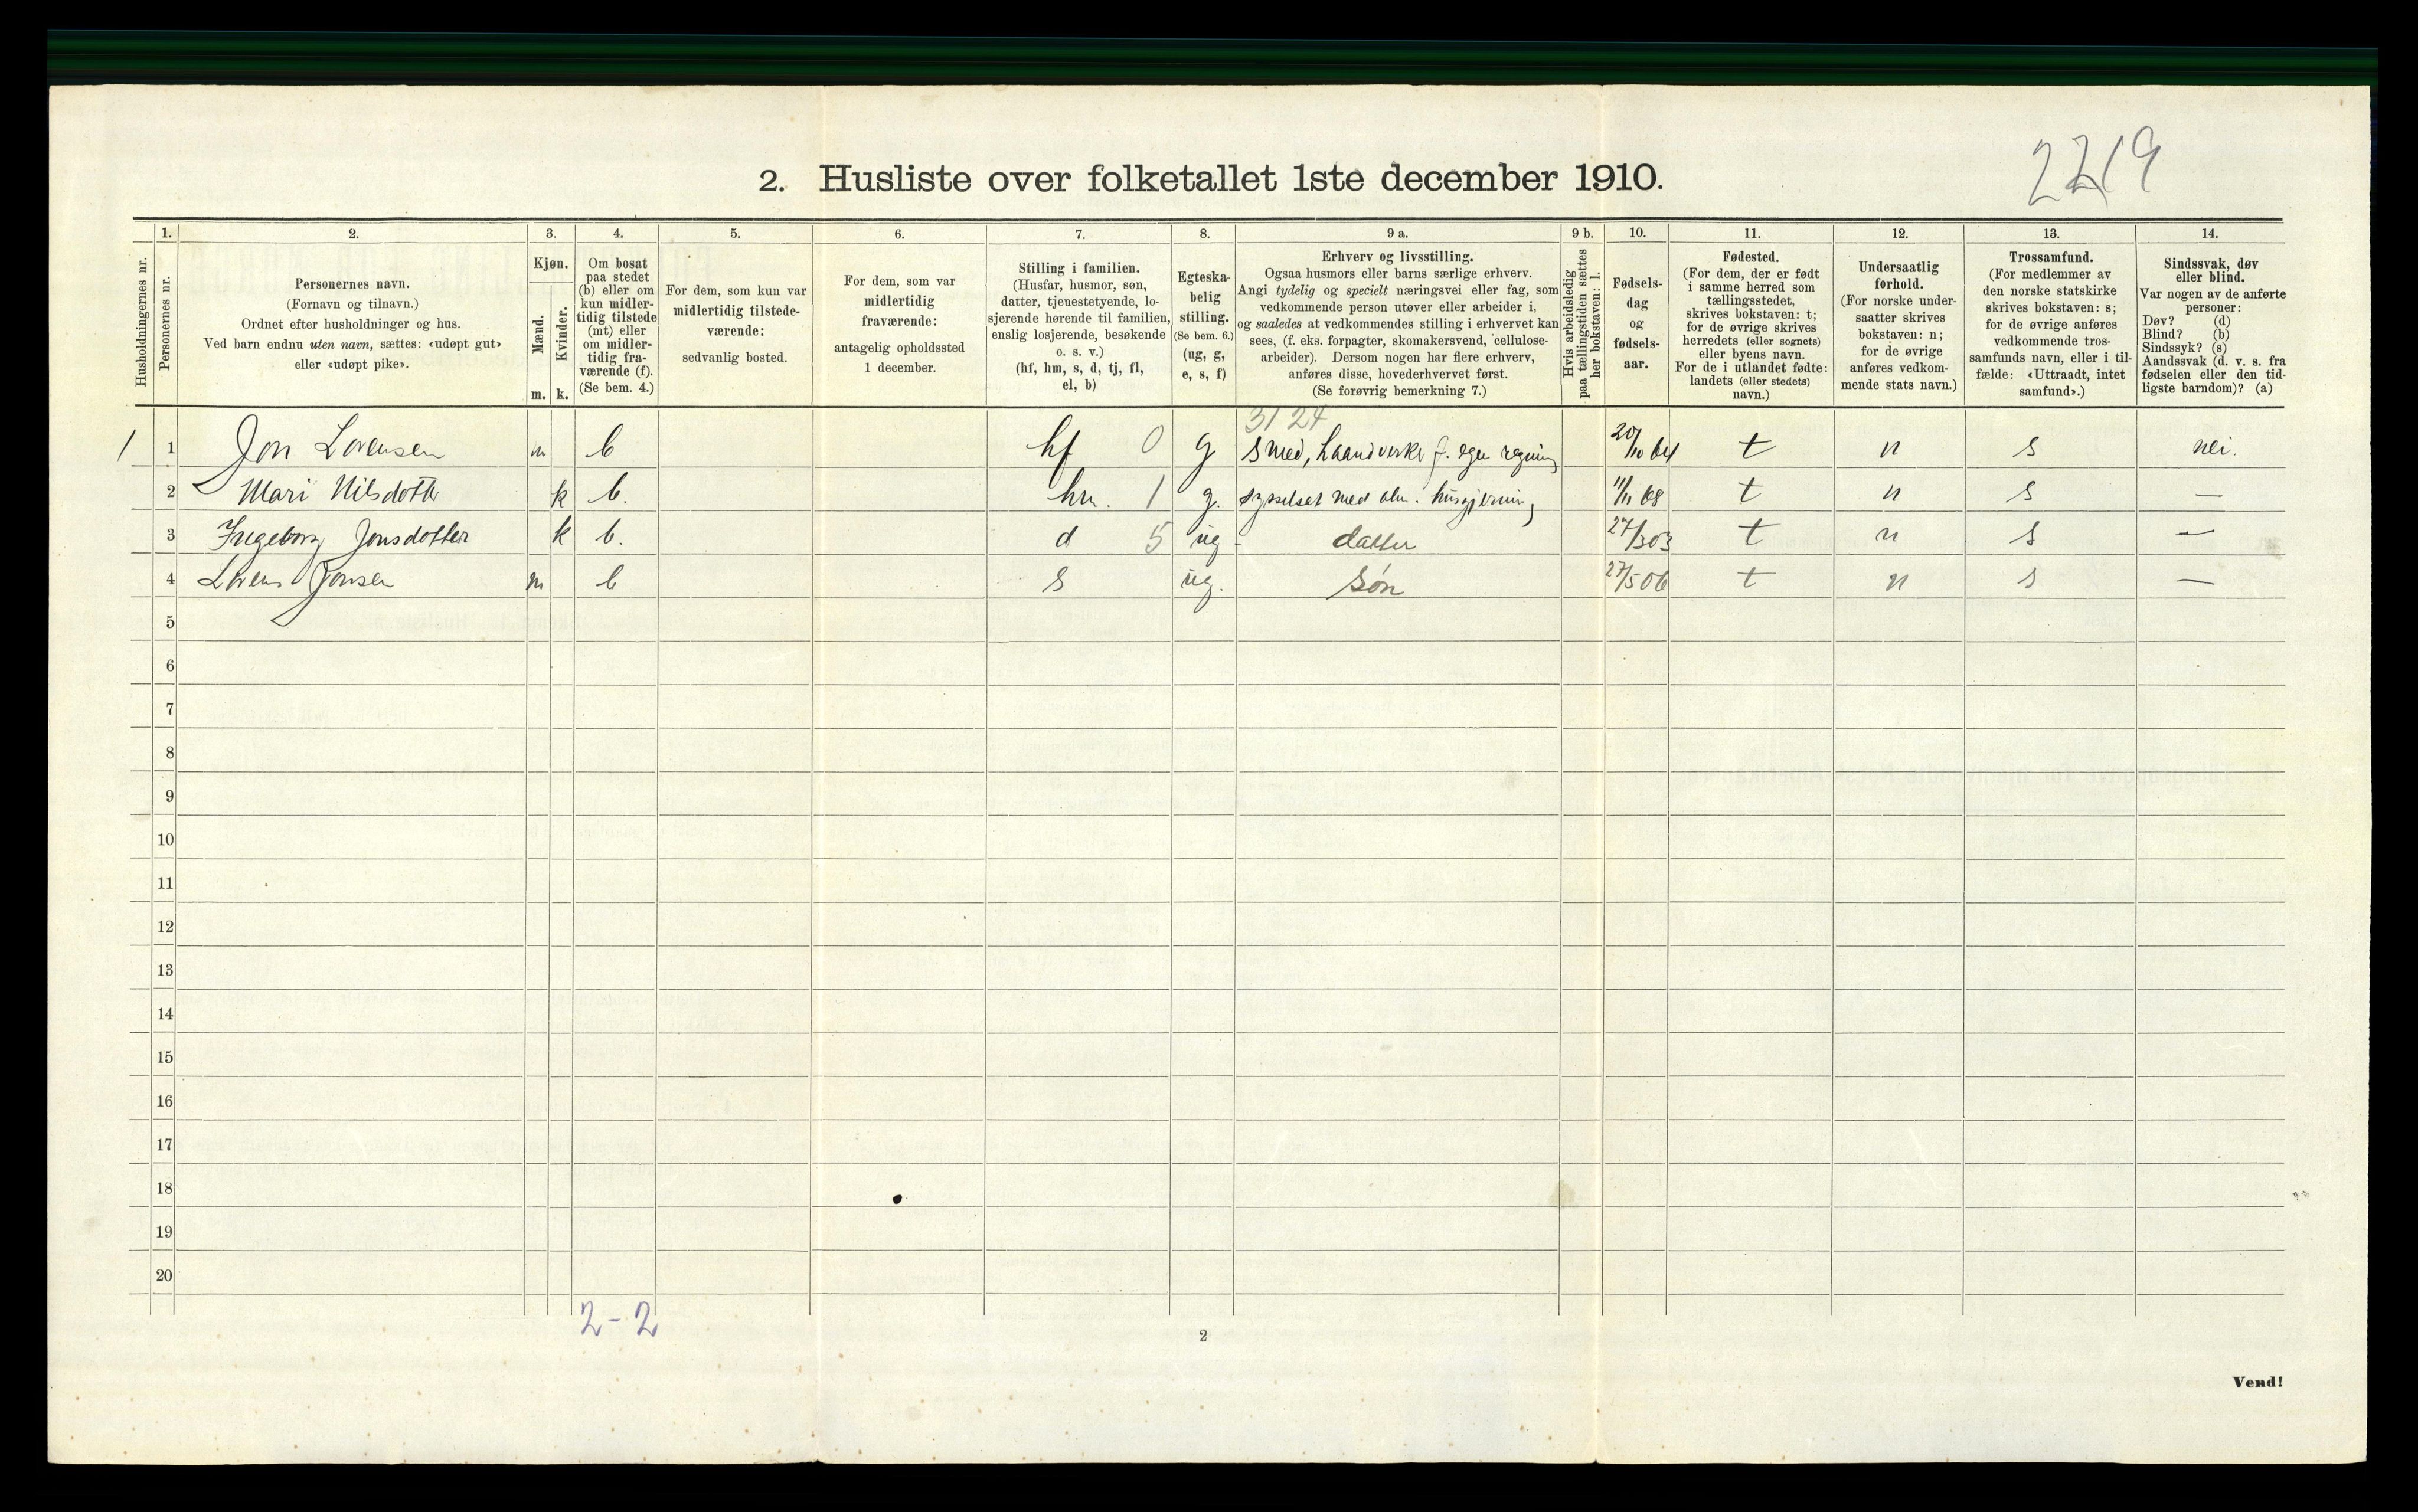 2219
2. Husliste over folketallet 1ste december 1910.
1. 2. 3. 4. 5. 6. 7. 8. 9 a. 9 b. 10. 11. 12. 13. 14.
Husholdningernes nr.
Personernes nr.
Personernes navn.
(Fornavn og tilnavn.)
Ordnet efter husholdninger og hus.
Ved barn endnu uten navn, sættes: «udøpt gut»
eller «udøpt pike».
Kjøn.
Mænd.
Kvinder.
m. k.
Om bosat
paa stedet
(b) eller om
kun midler-
tidig tilstede
(mt) eller
om midler-
tidig fra-
værende (f).
(Se bem. 4.)
For dem, som kun var
midlertidig tilstede-
værende:
sedvanlig bosted.
For dem, som var
midlertidig
fraværende:
antagelig opholdssted
1 december.
Stilling i familien.
(Husfar, husmor, søn,
datter, tjenestetyende, lo-
sjerende hørende til familien,
enslig losjerende, besøkende
o. s. v.)
(hf, hm, s, d, tj, fl,
el, b)
Egteska-
belig
stilling.
(Se bem. 6.)
(ug, g,
e, s, f)
Erhverv og livsstilling.
Ogsaa husmors eller barns særlige erhverv.
Angi tydelig og specielt næringsvei eller fag, som
vedkommende person utøver eller arbeider i,
og saaledes at vedkommendes stilling i erhvervet kan
sees, (f. eks. forpagter, skomakersvend, cellulose-
arbeider). Dersom nogen har flere erhverv,
anføres disse, hovederhvervet først.
(Se forøvrig bemerkning 7.)
Hvis arbeidsledig
paa tællingstiden sættes
her bokstaven: l.
Fødsels-
dag
og
fødsels-
aar.
Fødested.
(For dem, der er født
i samme herred som
tællingsstedet,
skrives bokstaven: t;
for de øvrige skrives
herredets (eller sognets)
eller byens navn.
For de i utlandet fødte:
landets (eller stedets)
navn.)
Undersaatlig
forhold.
(For norske under-
saatter skrives
bokstaven: n;
for de øvrige
anføres vedkom-
mende stats navn.)
Trossamfund.
(For medlemmer av
den norske statskirke
skrives bokstaven: s;
for de øvrige anføres
vedkommende tros-
samfunds navn, eller i til-
fælde: «Uttraadt, intet
samfund».)
Sindssvak, døv
eller blind.
Var nogen av de anførte
personer:
Døv? (d)
Blind? (b)
Sindssyk? (s)
Aandssvak (d. v. s. fra
fødselen eller den tid-
ligste barndom)? (a)
3124
1 1 Jon Lorensen m b hf 0 g smed, haandverker f. egen regning 20/10 64 t n s nei.
2 Mari Nilsdotter k b. hm. 1 g. sysselsat med alm. husgjerning 11/11 68 t n s —
3 Ingeborg Jonsdotter k b. d 5 ug - datter 27/3 03 t n s —
4 Lorens Jonsen m b s ug. søn 27/5 06 t n s —
5
6
7
8
9
10
11
12
13
14
15
16
17
18
19
20
2-2
2
Vend!